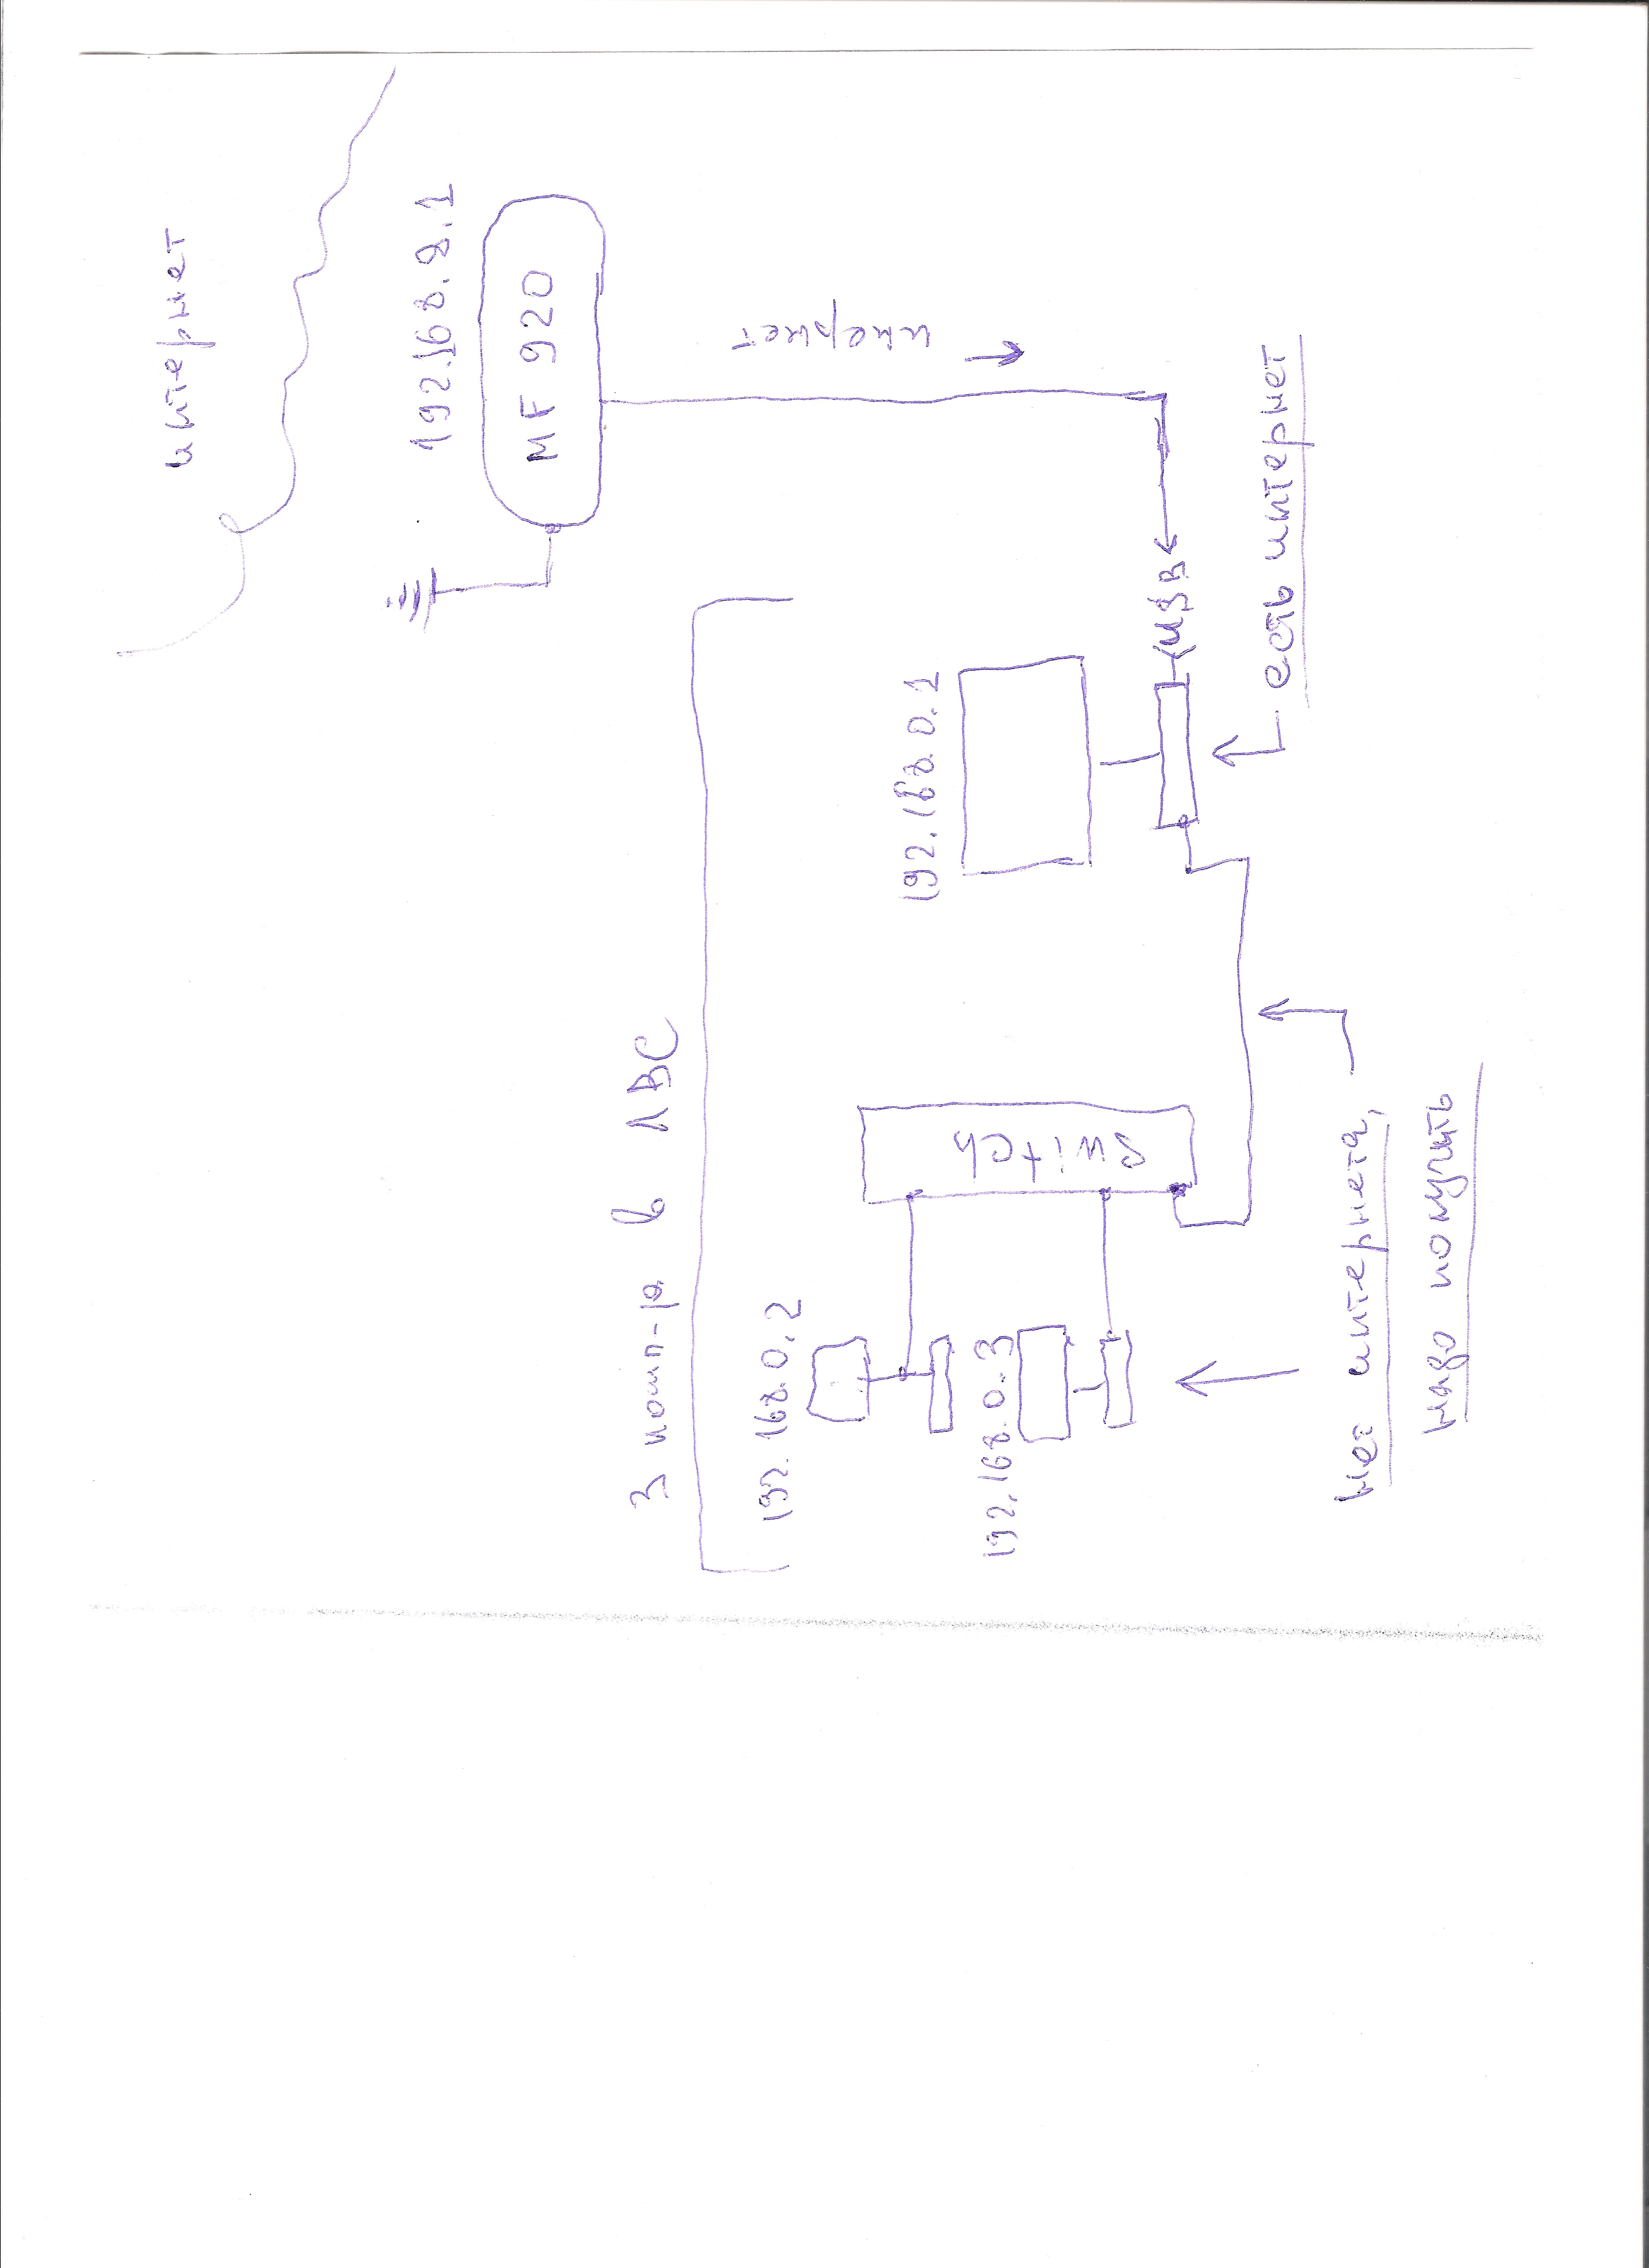 интернет
192.168.9.1
MF 920
интернет
3 комп-ра в ЛВС
192.168.0.1
USB
есть интернет
Switch
192.168.0.2
192.168.0.3
нет интернета,
надо получить